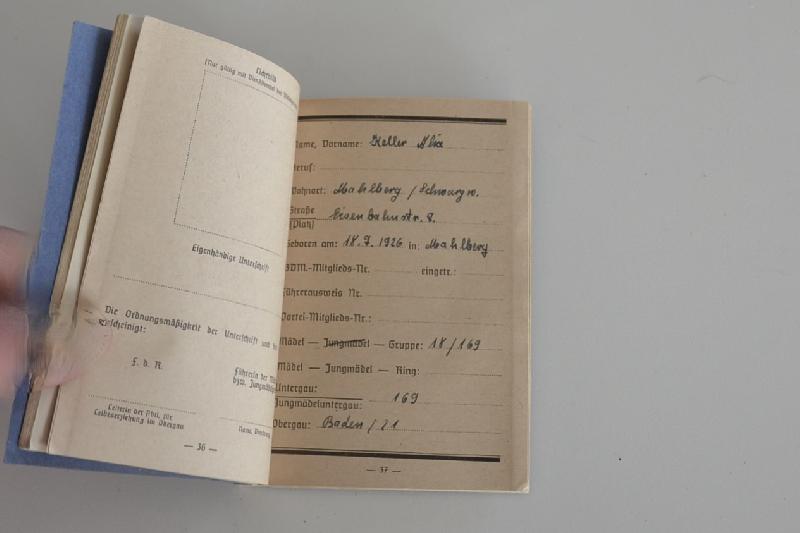 Lichtbild
Eigenhändige Unterschrift
Die Ordnungsmäßigkeit der Unterschrift und des
bescheinigt:
F. d. R.
Führerin der
bzw. Jungmädel
Leiterin der Abt. für
Leibeserziehung im Obergau
— 36 —
Name, Vorname: Keller Alix
Beruf:
Wohnort: Mahlberg / Schwarzw.
Straße Eisenbahnstr. 8.
(Platz)
Geboren am: 18. 7. 1926 in: Mahlberg
BDM.-Mitglieds-Nr. eingetr.:
Führerausweis Nr.
Partei-Mitglieds-Nr.:
Mädel — Jungmädel — Gruppe: 18/169
Mädel — Jungmädel — Ring:
Untergau: 169
Jungmädeluntergau:
Obergau: Baden / 21
— 37 —